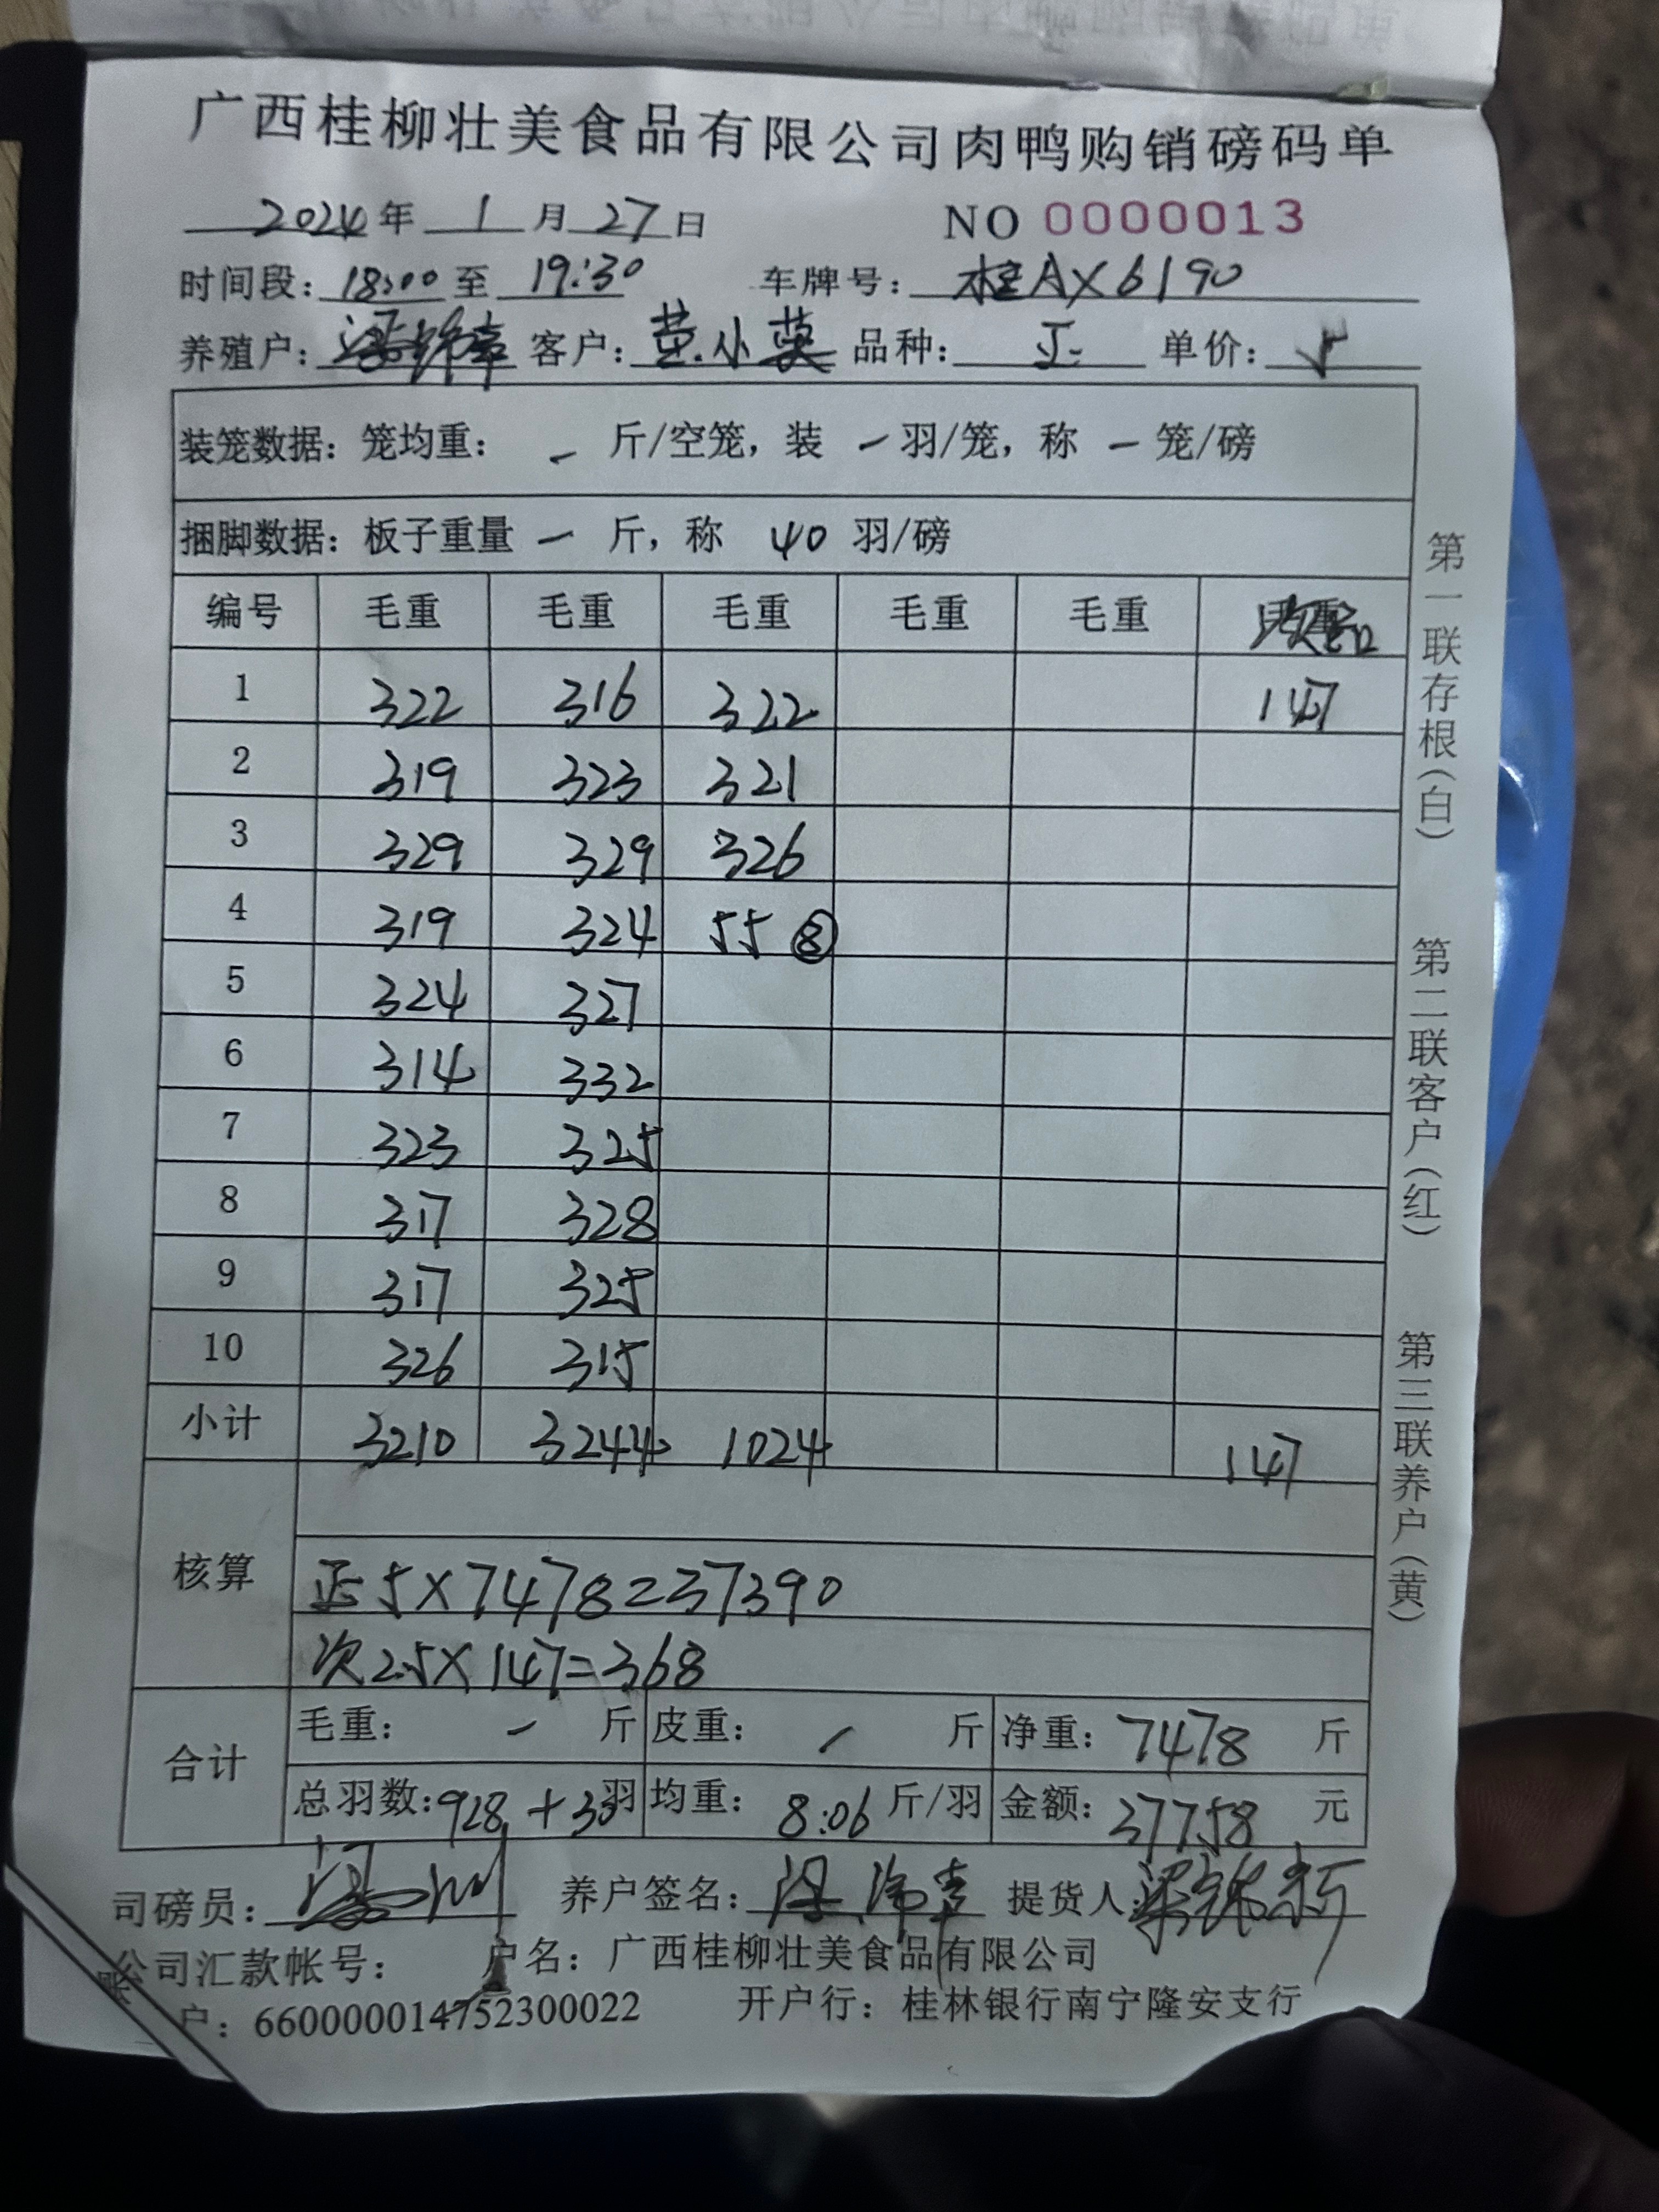 广西桂柳壮美食品有限公司肉鸭购销磅码单
2024年 1月 27日 NO 0000013
时间段：18:00 至 19:30 车牌号：桂AX6190
养殖户： 客户：黄小英 品种：正 单价：5
装笼数据：笼均重： - 斤/空笼，装 - 羽/笼，称 - 笼/磅
捆脚数据：板子重量 - 斤，称 40 羽/磅
编号 毛重 毛重 毛重 毛重 毛重
1 322 316 322 147
2 319 323 321
3 329 329 326
4 319 324 55 ⑧
5 324 327
6 314 332
7 323 325
8 317 328
9 317 325
10 326 315
小计 3210 3244 1024 147
核算
正5×7478=37390
次2.5×147=368
合计
毛重： - 斤 皮重： - 斤 净重：7478 斤
总羽数：928+33羽 均重：8:06 斤/羽 金额：37758 元
司磅员： 养户签名： 提货人：
公司汇款帐号： 户名：广西桂柳壮美食品有限公司
户：660000014752300022 开户行：桂林银行南宁隆安支行
第一联存根（白） 第二联客户（红） 第三联养户（黄）